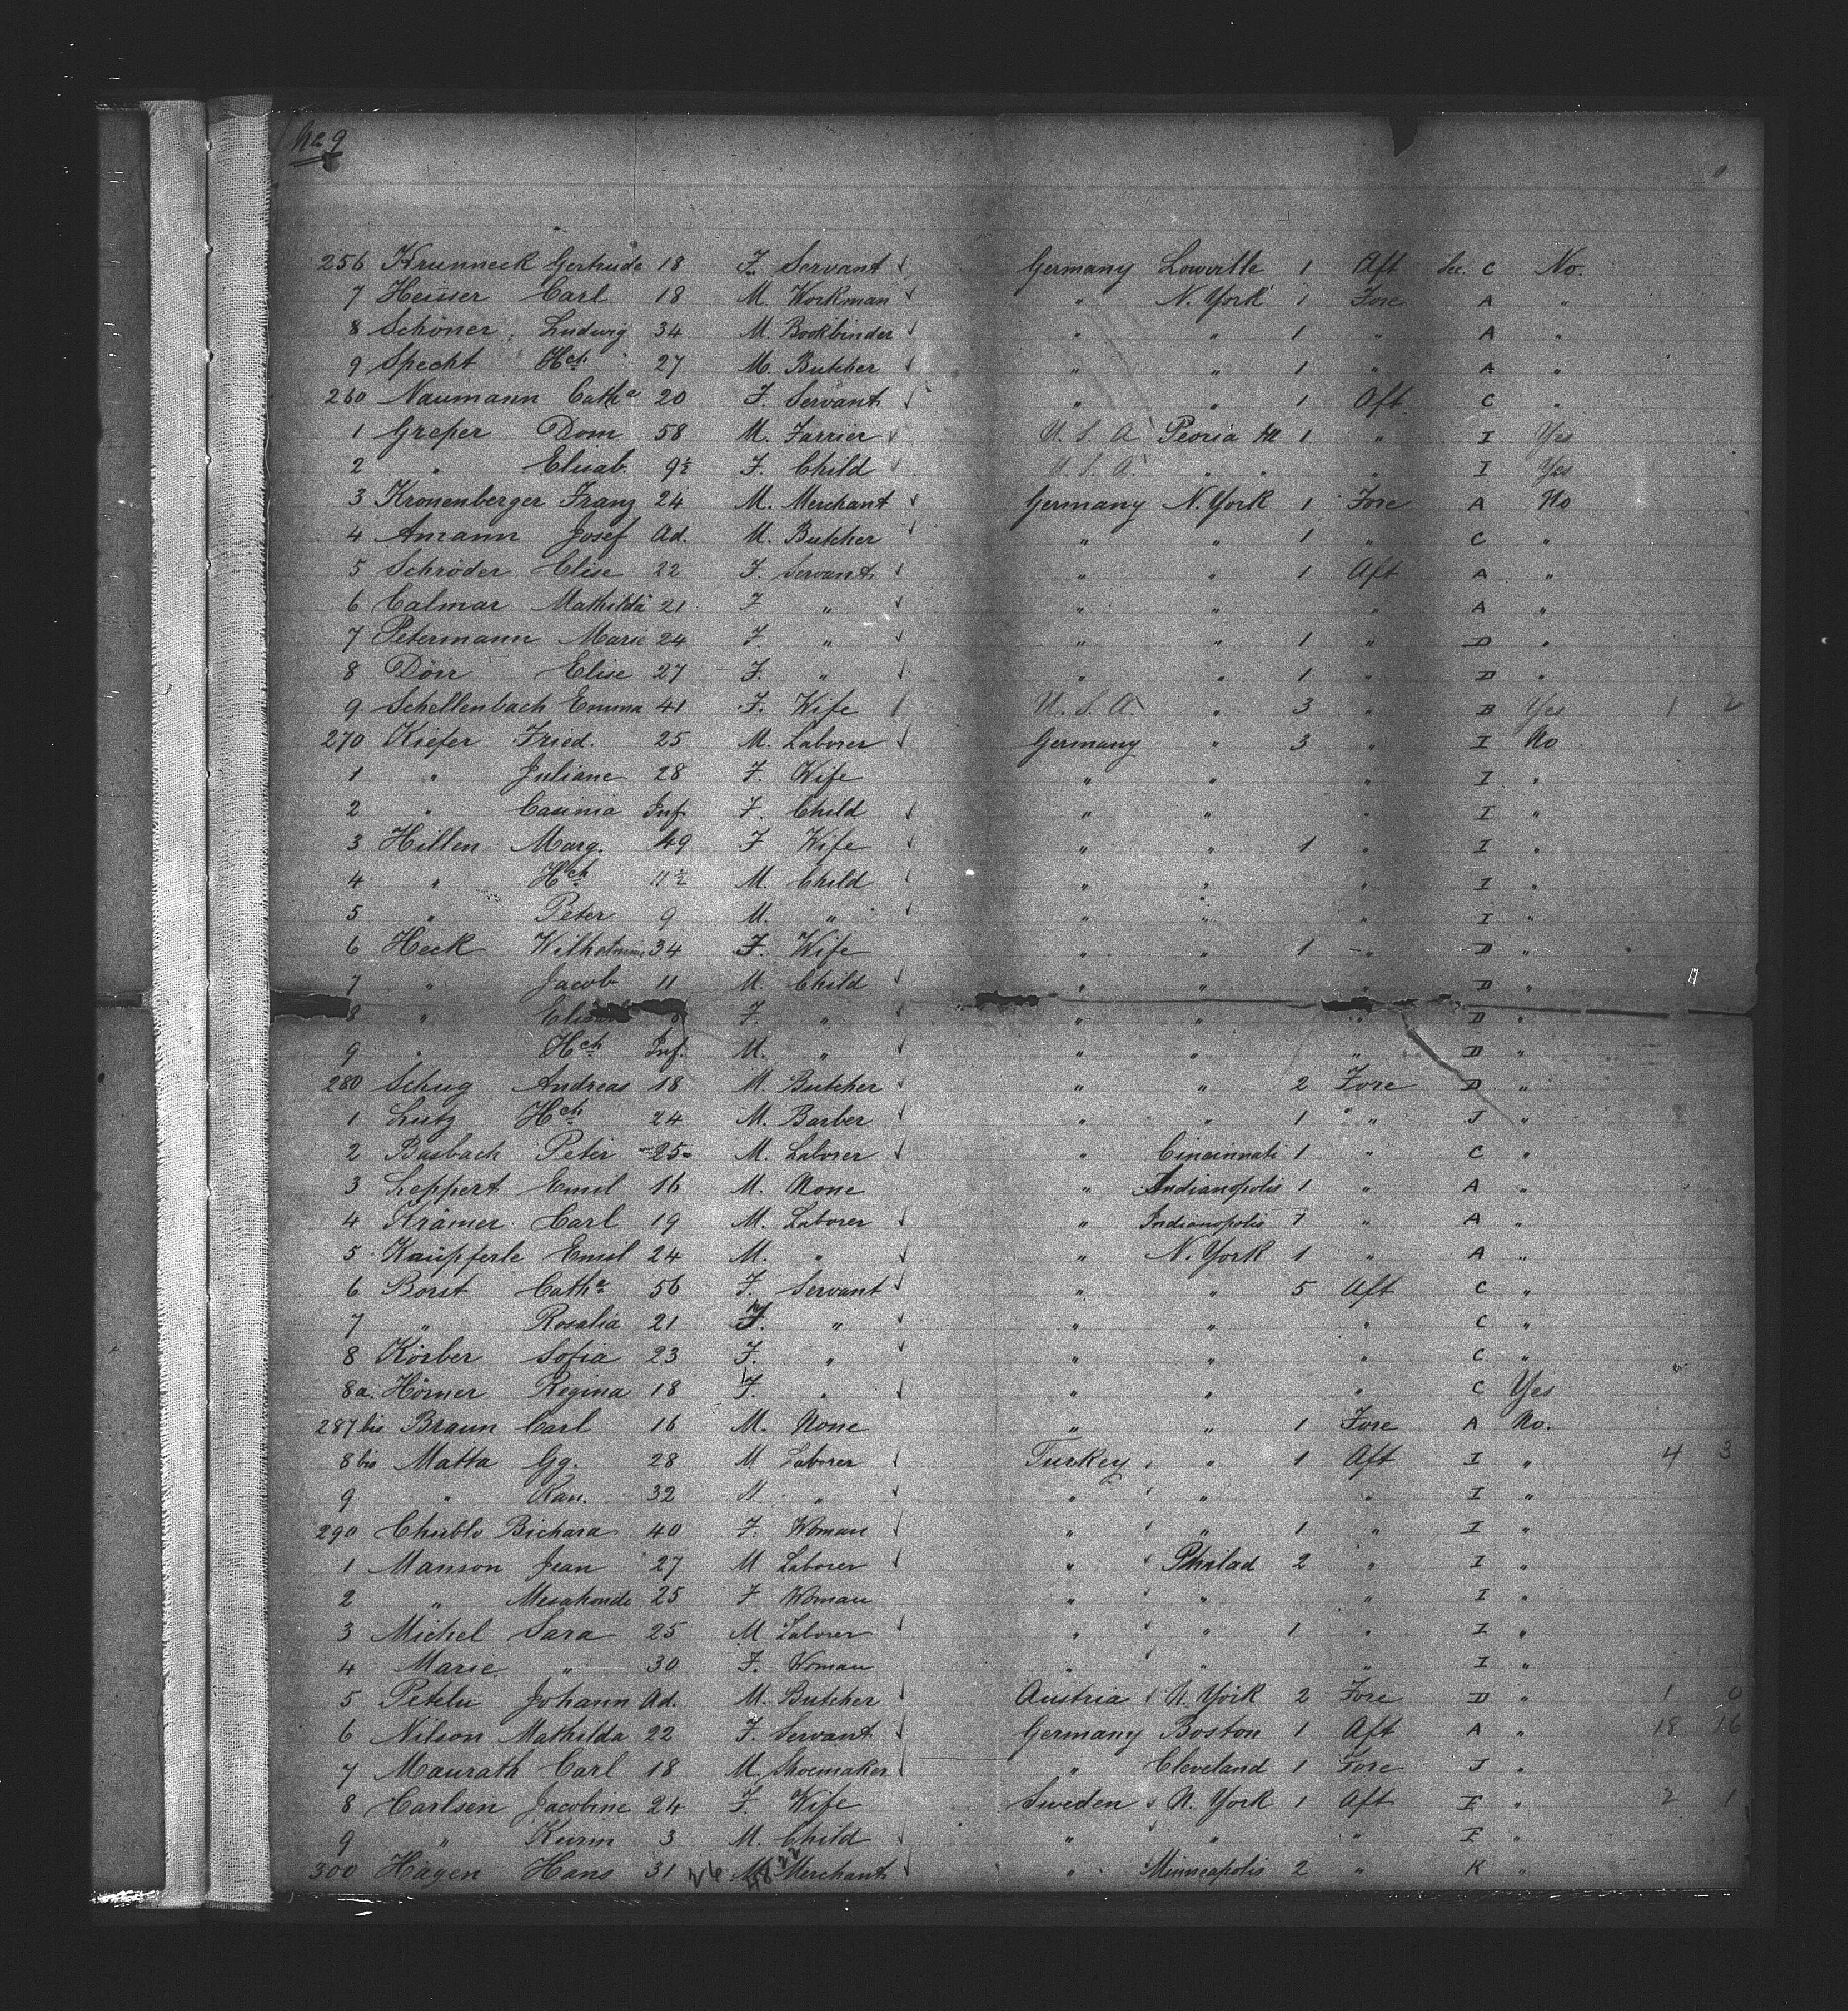 No 9
256 Krunneck Gertrude 18 F. Servant Germany Lowville 1 Aft Sec. C No.
7 Heisser Carl 18 M. Workman " N. York 1 Fore A "
8 Schöner Ludwig 34 M Bookbinder " " 1 " A "
9 Specht Hch 27 M. Butcher " " 1 " A "
260 Naumann Catha 20 F. Servant " " 1 Aft C "
1 Greper Dom 58 M. Farrier U. S. A Peoria Ill 1 " I Yes
2 " Elisab. 9½ F. Child U. S. A. " " " I Yes
3 Kronenberger Franz 24 M. Merchant Germany N. York 1 Fore A No
4 Amann Josef Ad. M. Butcher " " 1 " C "
5 Schröder Elise 22 F. Servant " " 1 Aft A "
6 Calmar Mathilda 21 F " " " " A "
7 Petermann Marie 24 F. " " " 1 " D "
8 Dörr Elise 27 F. " " " 1 " D "
9 Schellenbach Emma 41 F. Wife U. S. A. " 3 " B Yes 1 2
270 Kiefer Fried. 25 M. Laborer Germany " 3 " I No
1 " Juliane 28 F. Wife " " " I "
2 " Inf. F. Child " " " I "
3 Hillen Marg. 49 F Wife " " 1 " I "
4 " Hch 11½ M. Child " " " I "
5 " Peter 9 M. " " " " I "
6 Heck 34 F. Wife " " 1 " D "
7 " Jacob 11 M. Child " " " D "
8 " F. " " " " D "
9 " Hch Inf. M. " " " " D "
280 Schug Andreas 18 M. Butcher " " 2 Fore D "
1 Lutz Hch 24 M. Barber " " 1 " J "
2 Basbach Peter 25 M. Laborer " Cincinnati 1 " C "
3 Leppert Emil 16 M. None " Indianopolis 1 " A "
4 Krämer Carl 19 M. Laborer " Indianopolis 1 " A "
5 Kaüpferle Emil 24 M. " " N. York 1 " A "
6 Borst Catha 56 F. Servant " " 5 Aft C "
7 " Rosalia 21 F. " " " " C "
8 Körber Sofia 23 F. " " " " C "
8a. Hörner Regina 18 F. " " " " C Yes
287 bis Braun Carl 16 M. None " " 1 Fore A No.
8 bis Matta Gg. 28 M Laborer Turkey " 1 Aft I " 4 3
9 " Ran. 32 M " " " " I "
290 Chublo Bichara 40 F. Woman " " 1 " I "
1 Manson Jean 27 M Laborer " Philad 2 " I "
2 " 25 F Woman " " " I "
3 Michel Sara 25 M Laborer " " 1 " I "
4 Marie " 30 F. Woman " " " I "
5 Johann Ad. M. Butcher Austria N. York 2 Fore D " 1 0
6 Nilson Mathilda 22 F. Servant Germany Boston 1 Aft A " 18 16
7 Maurath Carl 18 M. Shoemaker " Cleveland 1 Fore J "
8 Carlsen Jacobine 24 F. Wife Sweden N. York 1 Aft F " 2 1
9 " 3 M. Child " " " F "
300 Hagen Hans 31 26 M. 48 22 Merchant " Minneapolis 2 " K "